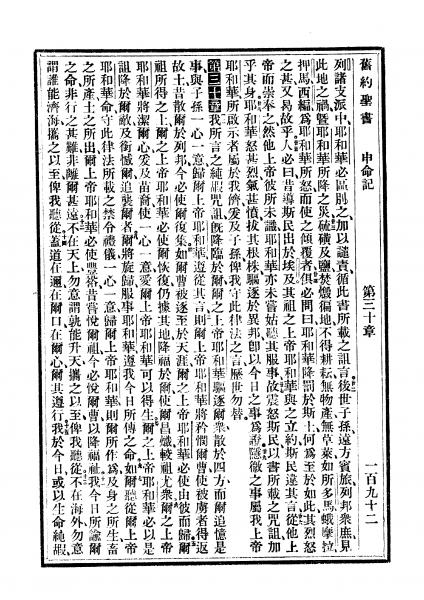 舊約聖書 申命記 第三十章 一百九十二
列諸支派中耶和華必區別之加以譴責循此書所載之詛言後世子孫遠方賓旅列邦衆庶見
此地之禍曁耶和華所降之災硫磺及鹽焚燬徧地不得耕耘無物產無草萊如所多馬蛾摩拉
押馬西編為耶和華所怒而使之傾覆者俱必問曰耶和華降罰於斯土何為至於此其烈怒
之甚又曷故乎人必曰昔導斯民出於埃及其祖之上帝耶和華與之立約斯民違其言從他上
帝而崇奉之然他上帝彼所未識耶和華亦未嘗姑聽其服事故震怒斯民以書所載之咒詛加
乎其身耶和華怒甚烈氣甚憤拔其根株驅逐於異邦卽以今日之事為證隱微之事屬我上帝
耶和華所啟示者屬於我儕爰及子孫俾我守此律法之言歷世勿替
第三十章我所言之純嘏咒詛旣降臨於爾爾之上帝耶和華驅逐爾衆散於四方而爾追憶是
事與子孫一心一意歸爾上帝耶和華遵從其言則爾上帝耶和華將矜憫爾曹使被虜者得返
故土昔散爾於列邦今必使爾復集如爾曹被逐至於天涯爾之上帝耶和華必使由彼而歸爾
祖所得之土爾上帝耶和華必使爾恢復仍據其地降福於爾使爾昌熾較祖尤衆爾之上帝
耶和華將潔爾心爰及苗裔使一心一意愛爾上帝耶和華可以得生爾之上帝耶和華必以是
詛降於爾敵及銜憾爾追襲爾者爾將旋歸服事耶和華遵我今日所傳之命如爾聽從爾上帝
耶和華命守此律法所載之禁令禮儀一心一意歸爾上帝耶和華則爾所作為及身之所生畜
之所產土之所出爾上帝耶和華必使豐裕昔嘗悅爾祖今必悅爾曹以降福祉我今日所諭爾
之命非行之甚難非離爾甚遠不在天上勿意謂孰能升天攜之以至俾我聽從不在海外勿意
謂誰能濟海攜之以至俾我聽從蓋道在邇在爾口在爾心爾其遵行我於今日或以生命純嘏